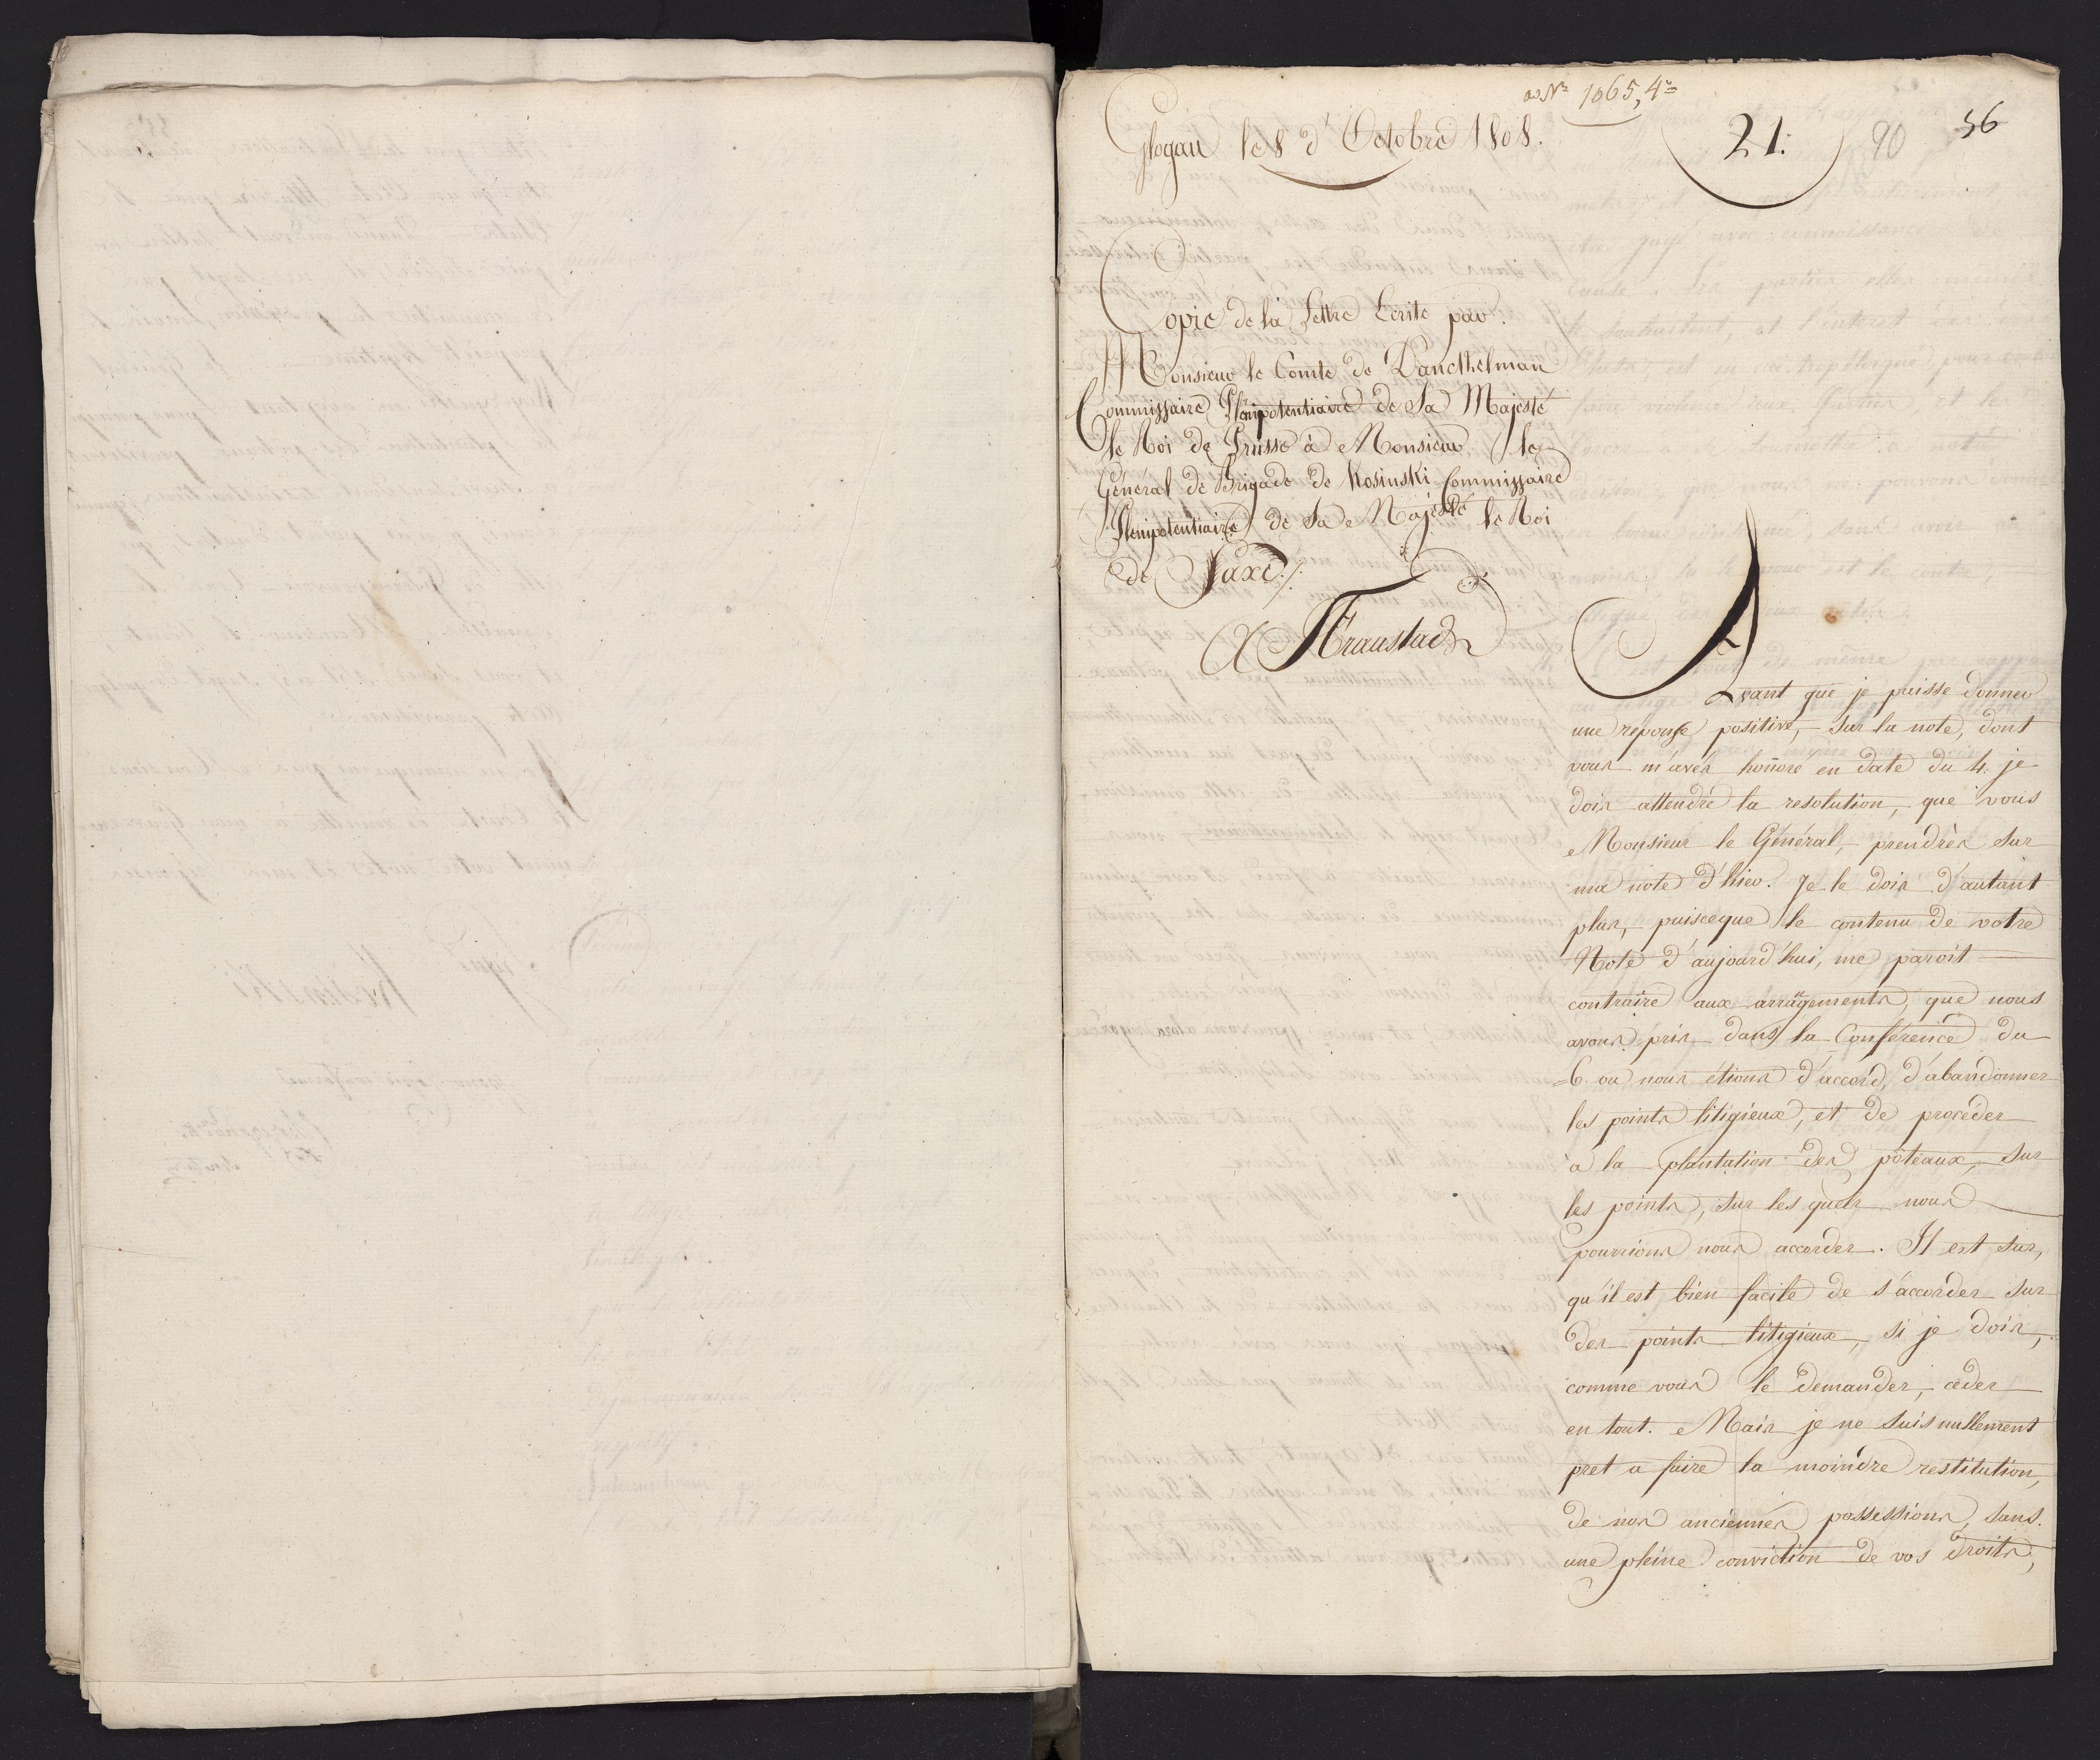 ad Nº 1065, 4º
Glogau le 8 d'Octobre 1808.
21.
90
56
Copie de la Lettre Ecrite par
Monsieur le Comte de Dancthelman
Commissaire Plenipotentiaire de Sa Majesté
le Roi de Prusse à Monsieur le
Général de Brigade de Kosinski Commissaire
Plenipotentiaire de Sa Majesté le Roi
de Saxe./.
A Fraustadt
Avant que je puisse donner
une reponse positive, sur la note, dont
vous m'avés honnoré en date du 4. je
dois attendre la resolution, que vous
Monsieur le Général, prendrés sur
ma note d'hier. Je le dois d'autant
plus, puisceque le contenu de votre
Note d'aujourd'hui, me paroit
contraire aux arrangements, que nous
avons pris dans la Conférence du
6. ou nous étions d'accord, d'abandonner
les points litigieux, et de procéder
à la plantation des pôteaux, sur
les points, sur les quels nous
pourrions nous accorder. Il est sur,
qu'il est bien facile de s'accorder sur
des points litigieux, si je dois,
comme vous le demandez, céder
en tout. Mais je ne suis nullement
pret a faire la moindre restitution,
de nos anciennes possessions, sans
une pleine conviction de vos droits,